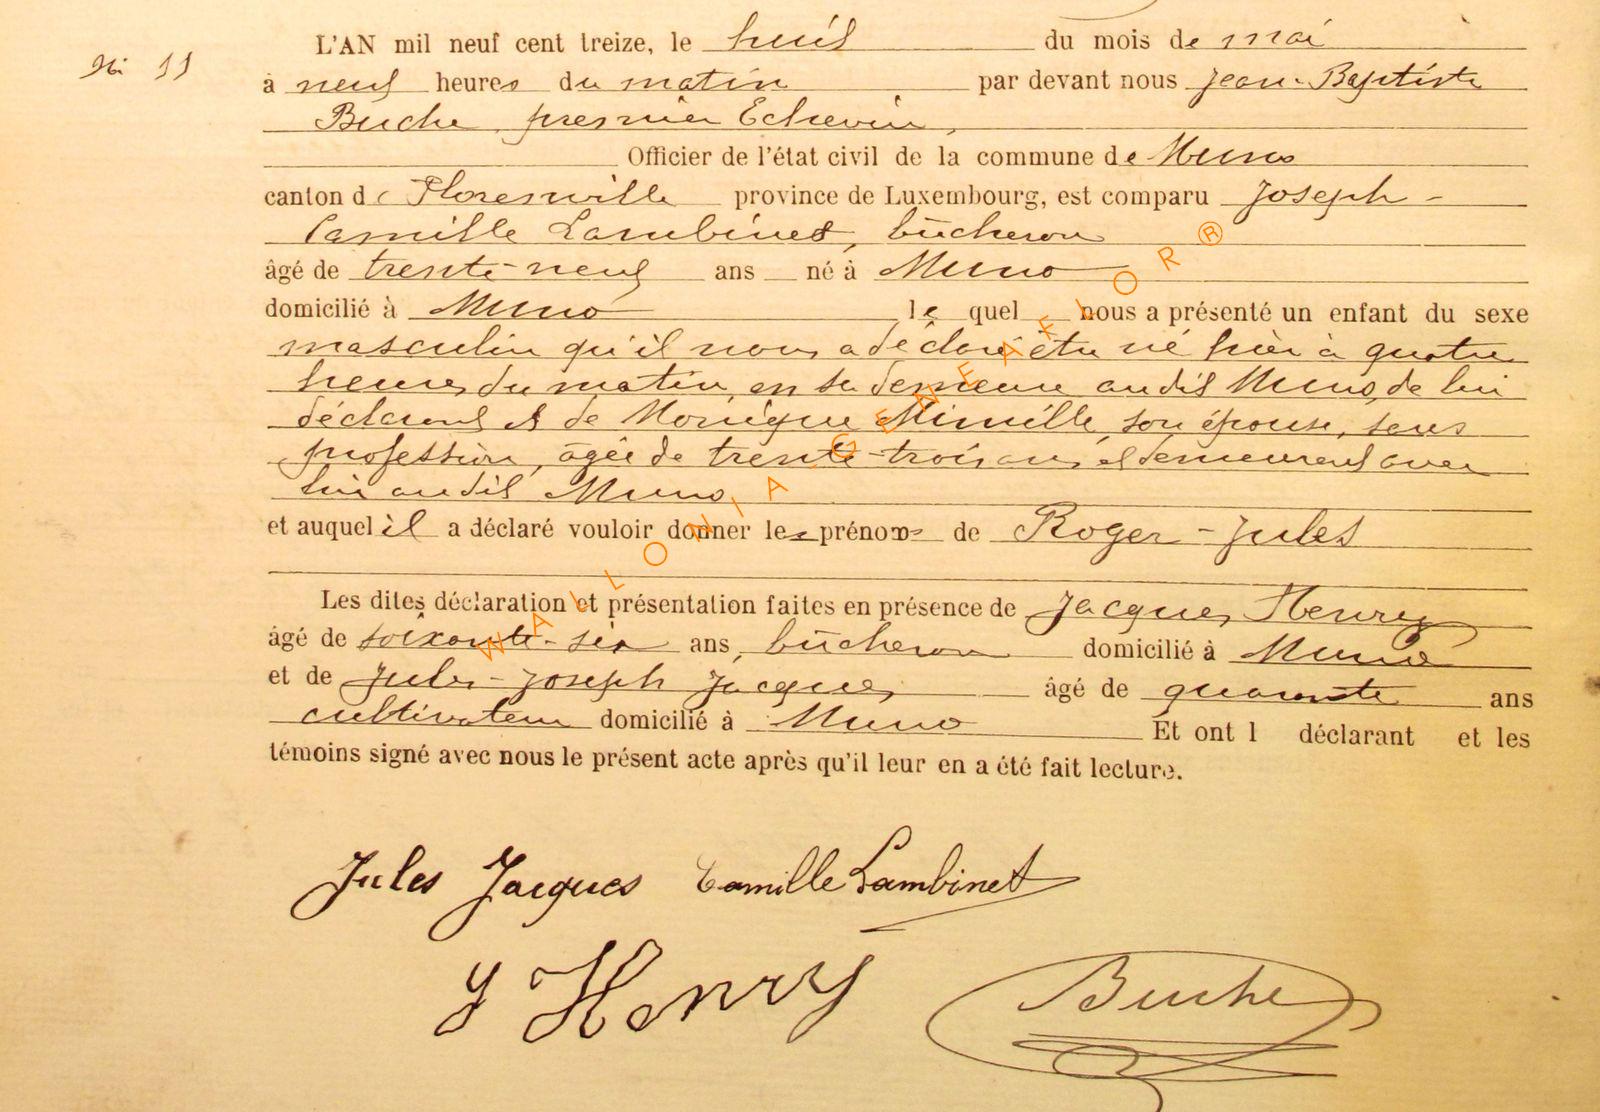 L'AN mil neuf cent treize, le huit du mois de mai
N° 11
à neuf heures du matin par devant nous Jean-Baptiste
Buche, premier Echevin,
Officier de l'état civil de la commune de Muno
canton de Florenville province de Luxembourg, est comparu Joseph-
Camille Lambinet, bûcheron
âgé de trente-neuf ans né à Muno
domicilié à Muno le quel nous a présenté un enfant du sexe
masculin qu'il nous a déclaré être né hier à quatre
heures du matin, en sa demeure audit Muno, de lui
déclarant et de Monique Mimille, son épouse, sans
profession, âgée de trente-trois ans et demeurant avec
lui audit Muno
et auquel il a déclaré vouloir donner les prénoms de Roger-Jules
Les dites déclaration et présentation faites en présence de Jacques Henry
âgé de soixante-six ans, bûcheron domicilié à Muno
et de Jules-Joseph Jacques, âgé de quarante ans
cultivateur domicilié à Muno Et ont l déclarant et les
témoins signé avec nous le présent acte après qu'il leur en a été fait lecture.
Jules Jacques Camille Lambinet
J Henry Buche
WALLONIA GENEAFLOR®